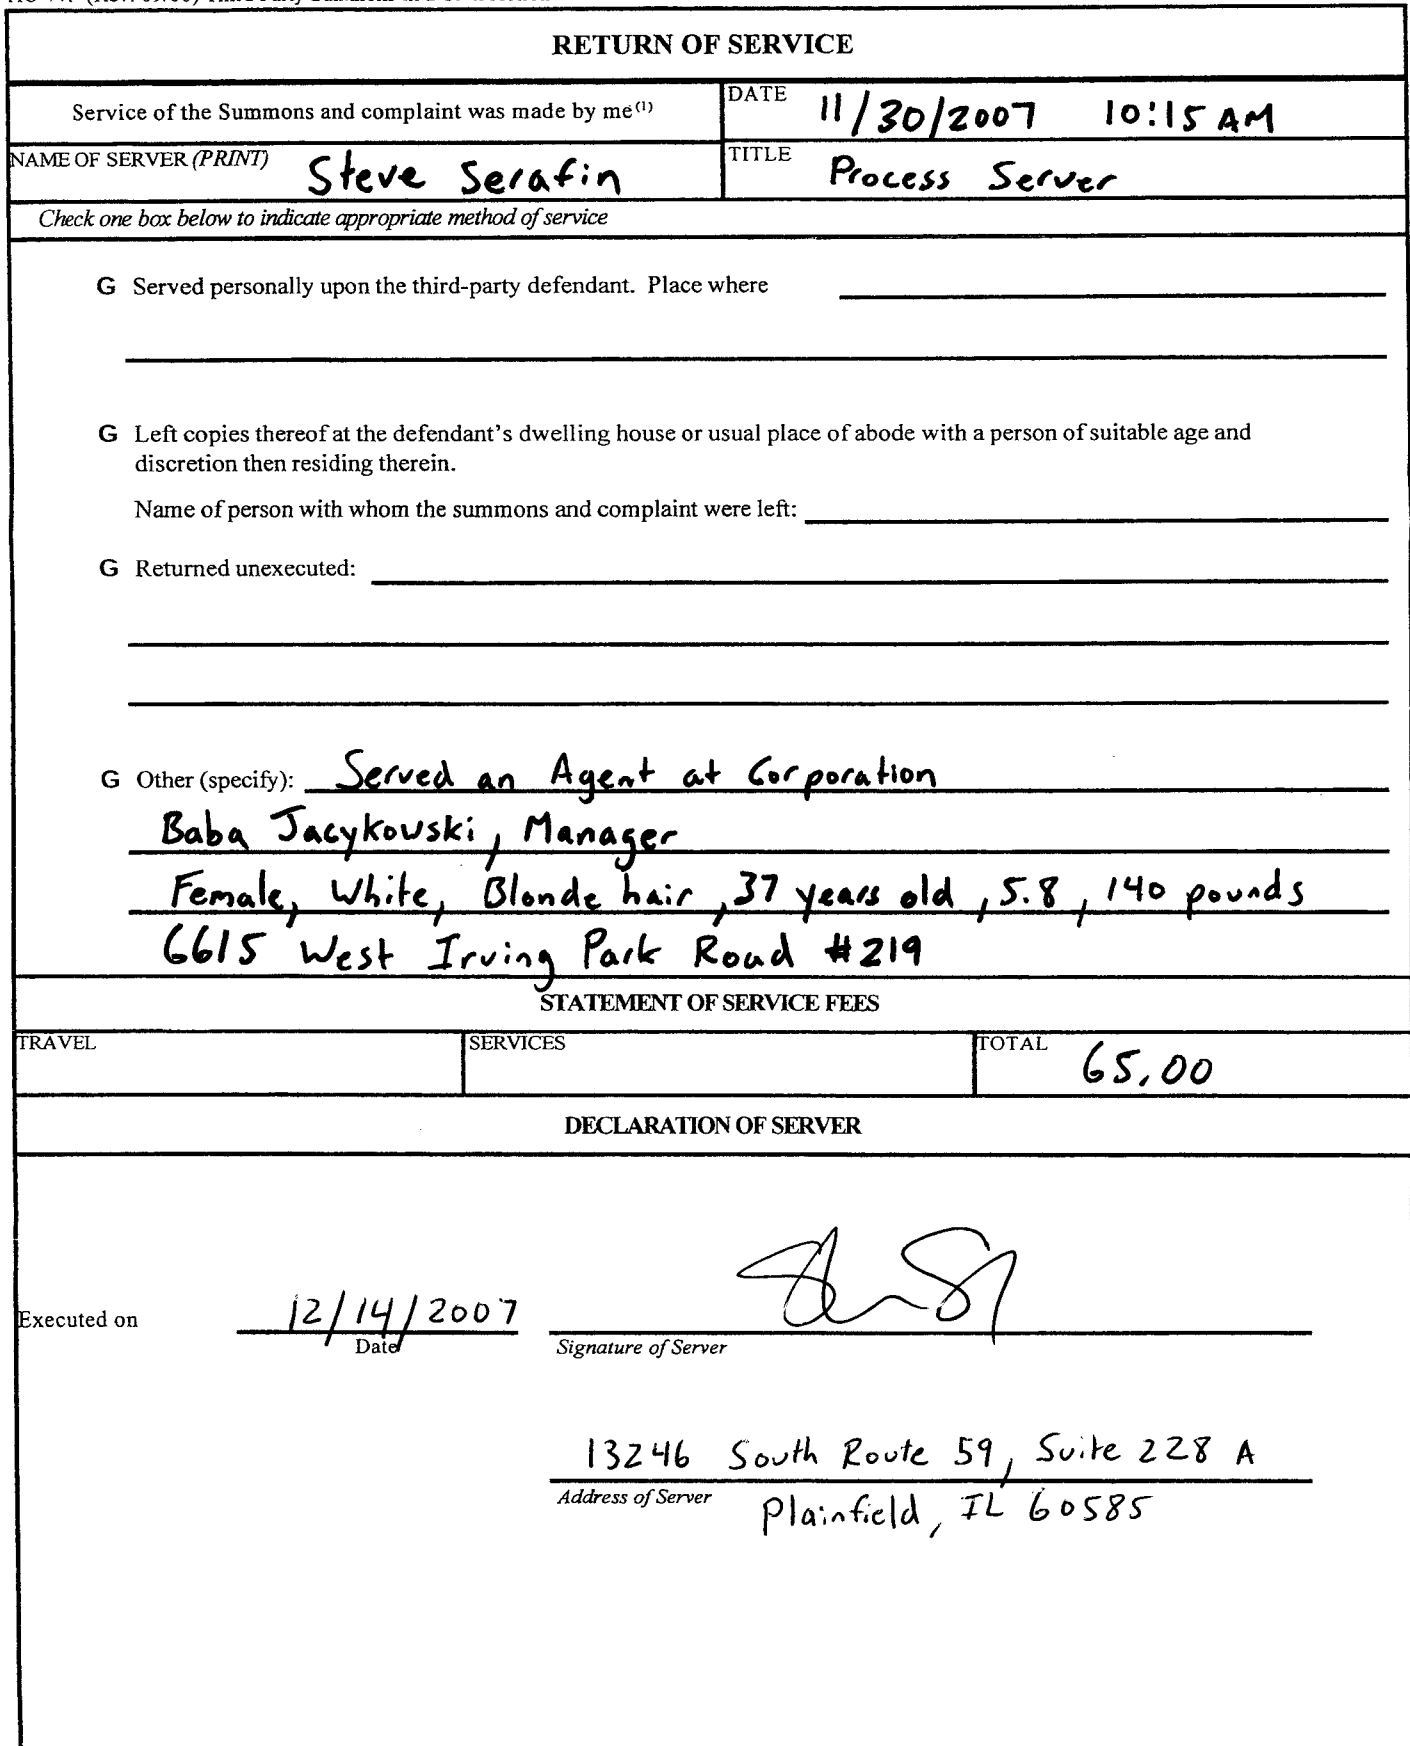 RETURN OF SERVICE
Service of the Summons and complaint was made by me(1)
DATE 11/30/2007 10:15 AM
NAME OF SERVER (PRINT) Steve Serafin
TITLE Process Server
Check one box below to indicate appropriate method of service
G Served personally upon the third-party defendant. Place where
G Left copies thereof at the defendant's dwelling house or usual place of abode with a person of suitable age and
discretion then residing therein.
Name of person with whom the summons and complaint were left:
G Returned unexecuted:
G Other (specify): Served an Agent at Corporation
Baba Jacykowski, Manager
Female, White, Blonde hair, 37 years old, 5.8, 140 pounds
6615 West Irving Park Road #219
STATEMENT OF SERVICE FEES
TRAVEL
SERVICES
TOTAL 65.00
DECLARATION OF SERVER
Executed on 12/14/2007
Date
Signature of Server
13246 South Route 59, Suite 228 A
Address of Server Plainfield, IL 60585